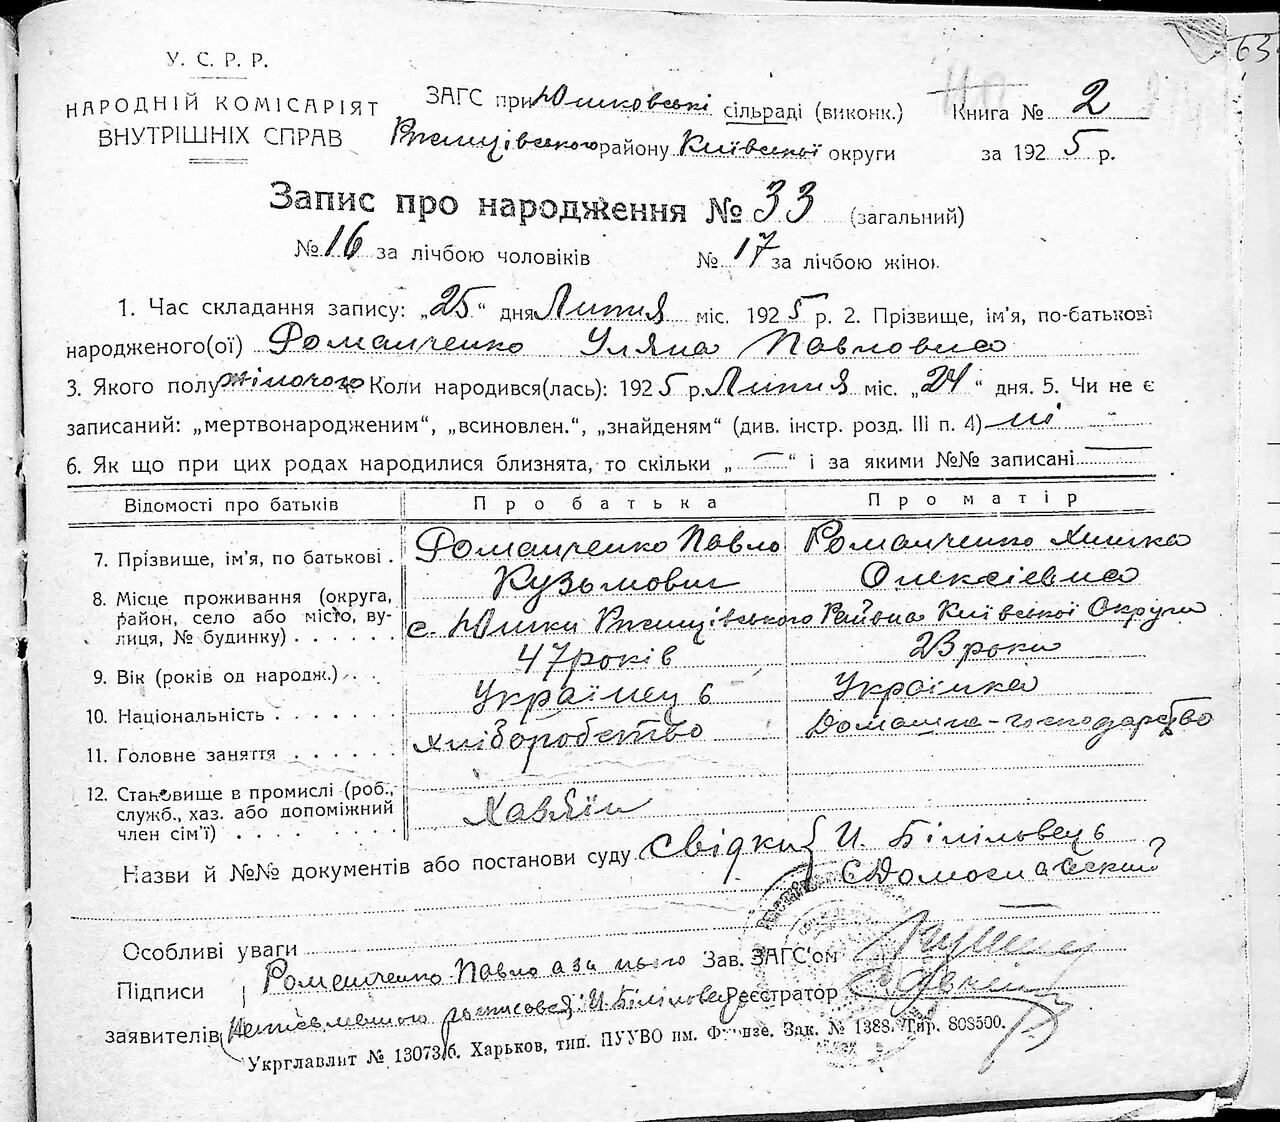 63
У. С. Р. Р.
НАРОДНІЙ КОМІСАРІЯТ
ВНУТРІШНІХ СПРАВ
ЗАГС при Юшковські сільраді (виконк.)
Ржищівського району Київської округи
Книга № 2
за 1925 р.
Запис про народження № 33 (загальний)
№ 16 за лічбою чоловіків № 17 за лічбою жінок
1. Час складання запису: „25“ дня Липня міс. 1925 р. 2. Прізвище, ім’я, по-батькові
народженого(ої) Романченко Уляна Павловна
3. Якого полу жіночого Коли народився(лась): 1925 р. Липня міс. „24“ дня. 5. Чи не є
записаний: „мертвонародженим“, „всиновлен.“, „знайденям“ (див. інстр. розд. III п. 4) ні
6. Як що при цих родах народилися близнята, то скільки „ — “ і за якими №№ записані
Відомості про батьків Про батька Про матір
7. Прізвище, ім’я, по батькові . Романченко Павло Романченко
Кузьмович Олексіевна
8. Місце проживання (округа,
район, село або місто, ву-
лиця, № будинку) . . . . . . с. Юшки Ржищівського Района Київської Округи
9. Вік (років од народж.) . . 47 років 23 роки
10. Національність . . . . . . . Українець Українка
11. Головне заняття . . . . . хліборобство Домашнє-господарство
12. Становище в промислі (роб.,
служб., хаз. або допоміжний
член сім’ї) . . . . . . . .
Назви й №№ документів або постанови суду свідки И. Білиловець
Особливі уваги
Підписи Романченко Павло а за нього Зав. ЗАГС’ом
заявителів неписьменного росписовся: И. Білиловец Реєстратор
Укрглавлит № 13073/б. Харьков, тип. ПУУВО им. Фрунзе. Зак. № 1388. Тир. 808500.